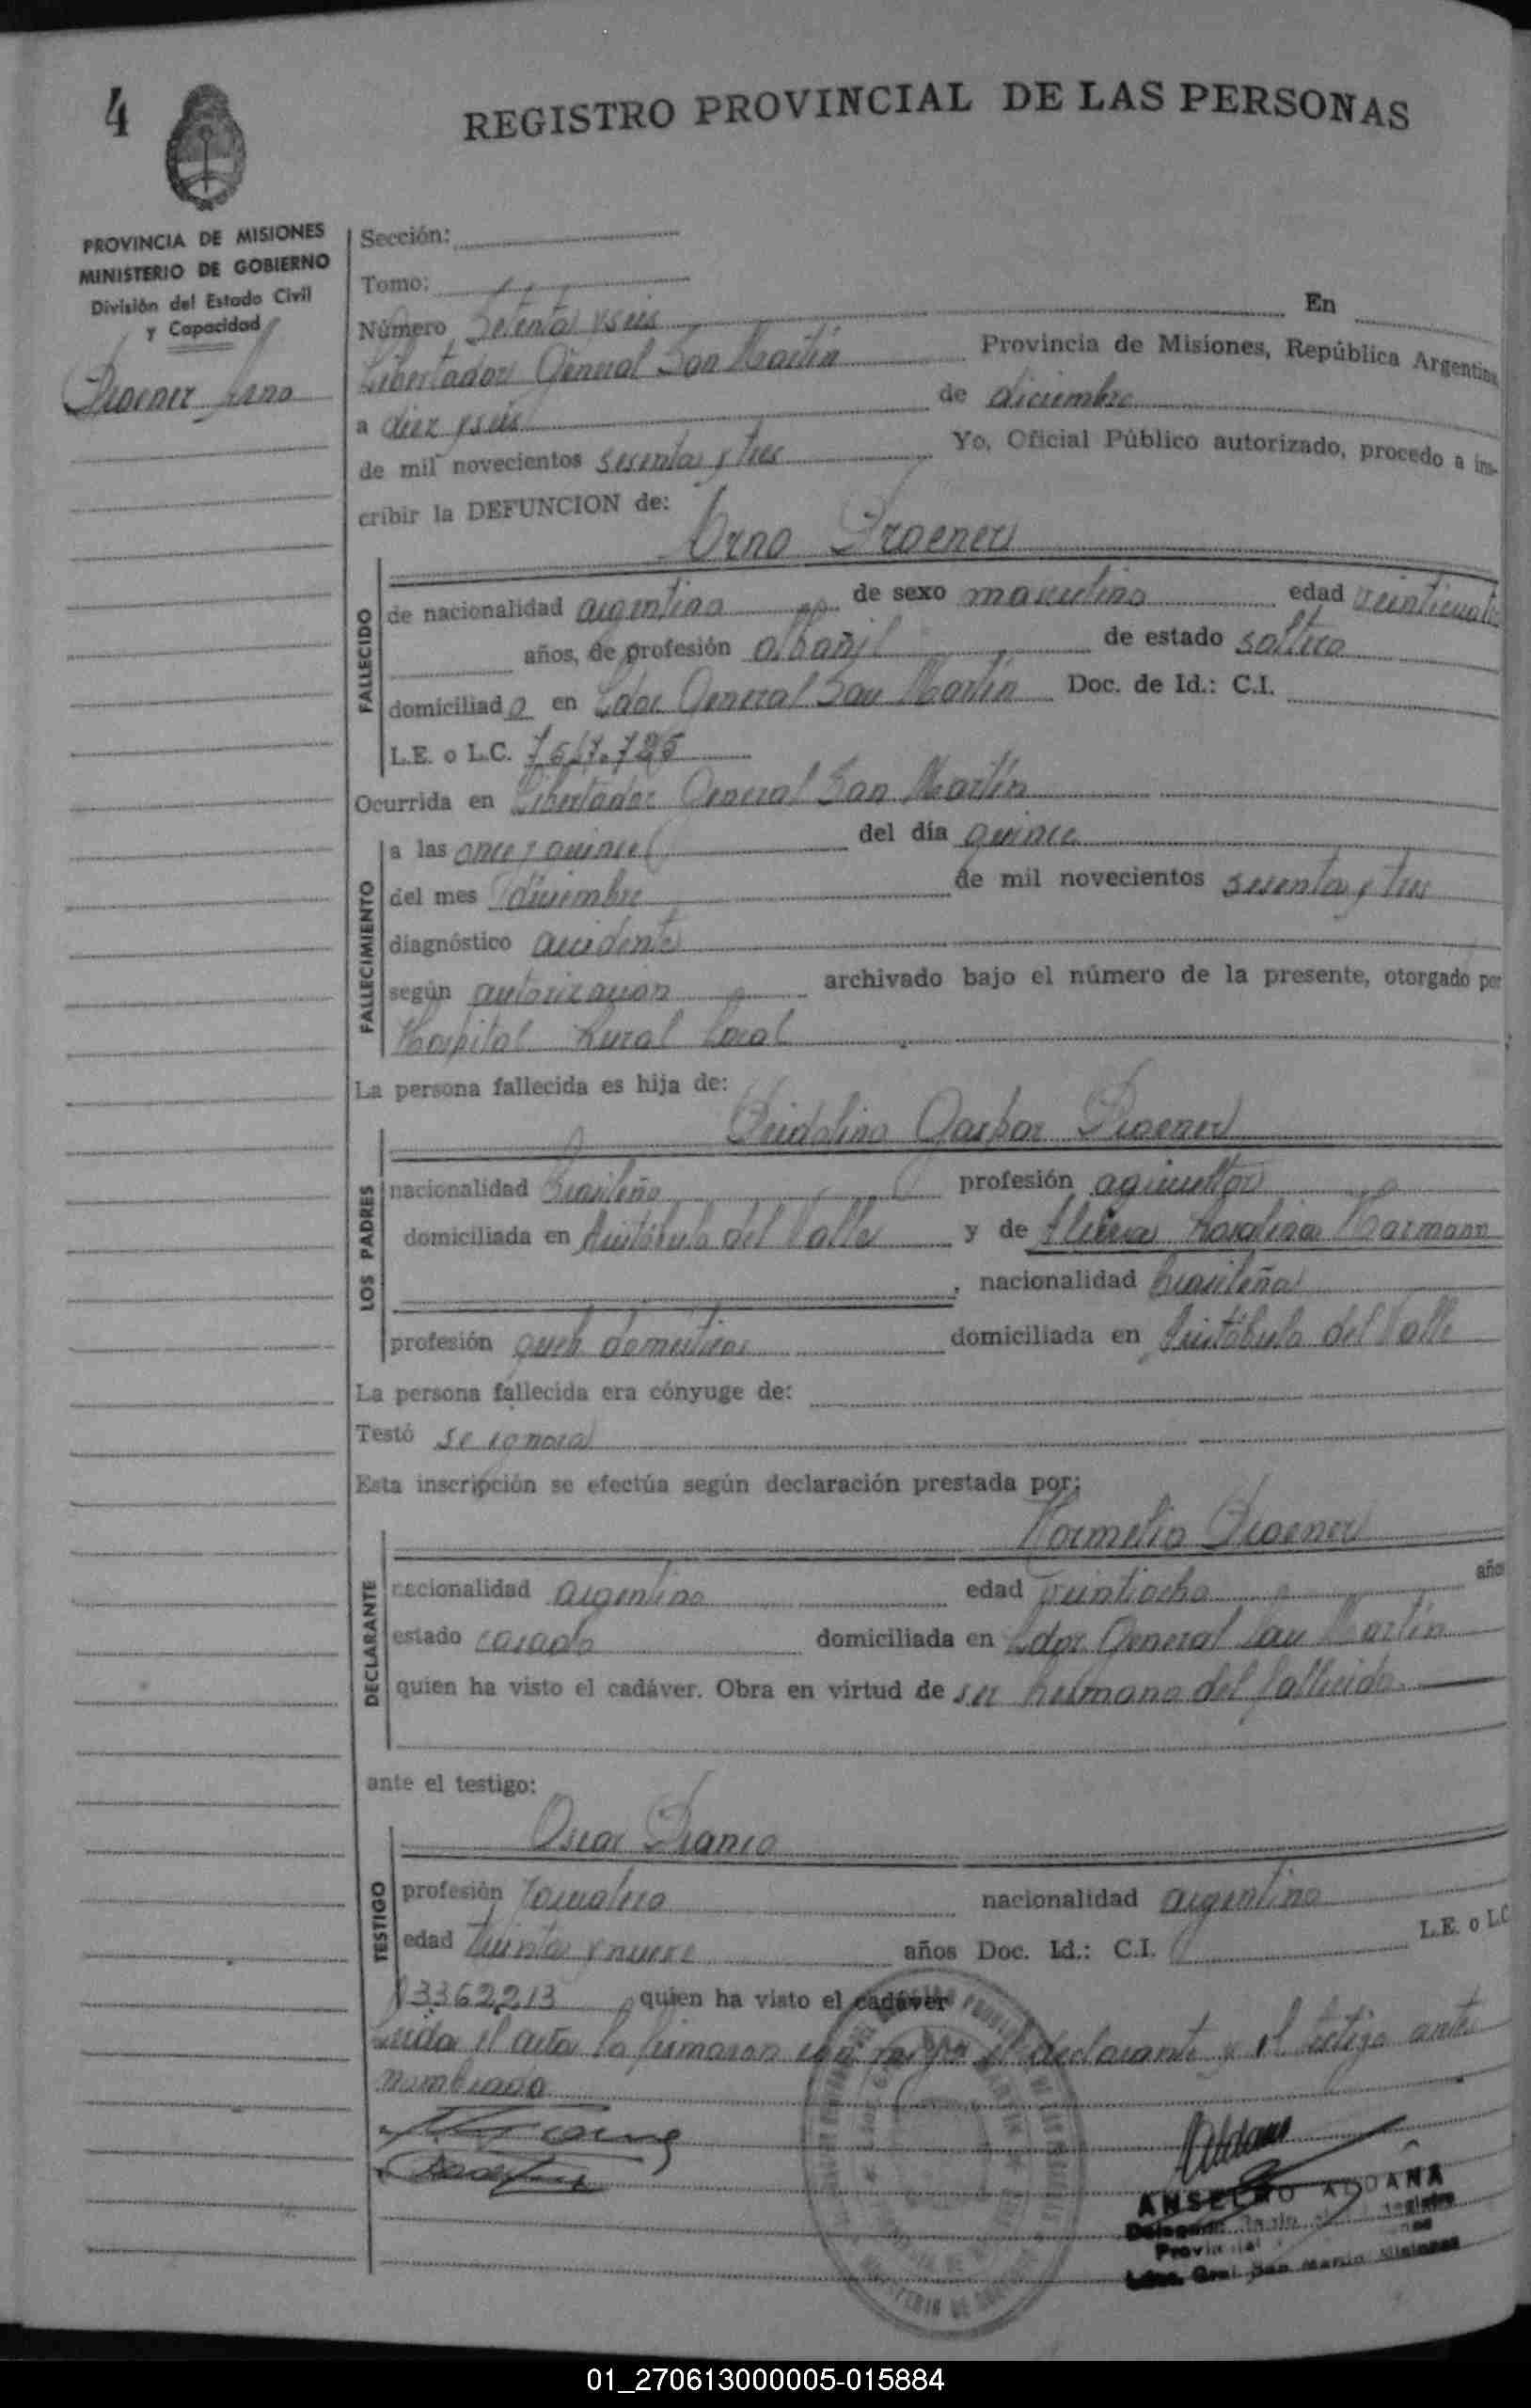 4
REGISTRO PROVINCIAL DE LAS PERSONAS
PROVINCIA DE MISIONES
MINISTERIO DE GOBIERNO
División del Estado Civil
y Capacidad
Proener Arno
Sección:
Tomo:
Número Setenta y seis En
Libertador General San Martín Provincia de Misiones, República Argentina,
a diez y seis de diciembre
de mil novecientos sesenta y tres Yo, Oficial Público autorizado, procedo a ins-
cribir la DEFUNCION de:
Arno Proener
FALLECIDO
de nacionalidad argentina de sexo masculino edad veinticuatro
años, de profesión albañil de estado soltero
domiciliado en Ldor General San Martín Doc. de Id.: C.I.
L.E. o L.C.
Ocurrida en Libertador General San Martín
FALLECIMIENTO
a las once y quince del día quince
del mes diciembre de mil novecientos sesenta y tres
diagnóstico accidente
según autorización archivado bajo el número de la presente, otorgado por
Hospital Rural Local
La persona fallecida es hija de:
Gaspar Proener
LOS PADRES
nacionalidad brasileño profesión agricultor
domiciliada en Aristóbulo del Valle y de
, nacionalidad brasileña
profesión domiciliada en Aristóbulo del Valle
La persona fallecida era cónyuge de:
Testó se ignora
Esta inscripción se efectúa según declaración prestada por:
Proener
DECLARANTE
nacionalidad argentino edad veintiocho años
estado casado domiciliada en Ldor General San Martín
quien ha visto el cadáver. Obra en virtud de ser hermano del fallecido.
ante el testigo:
Oscar Franco
TESTIGO
profesión jornalero nacionalidad argentino
edad treinta y nueve años Doc. Id.: C.I. L.E. o L.C.
3362213 quien ha visto el cadáver
Leída el acta la firmaron con migo el declarante y el testigo ante
nombrado
ANSELMO ALDAÑA
Provincial
Ldor. Gral. San Martín Misiones
01_270613000005-015884